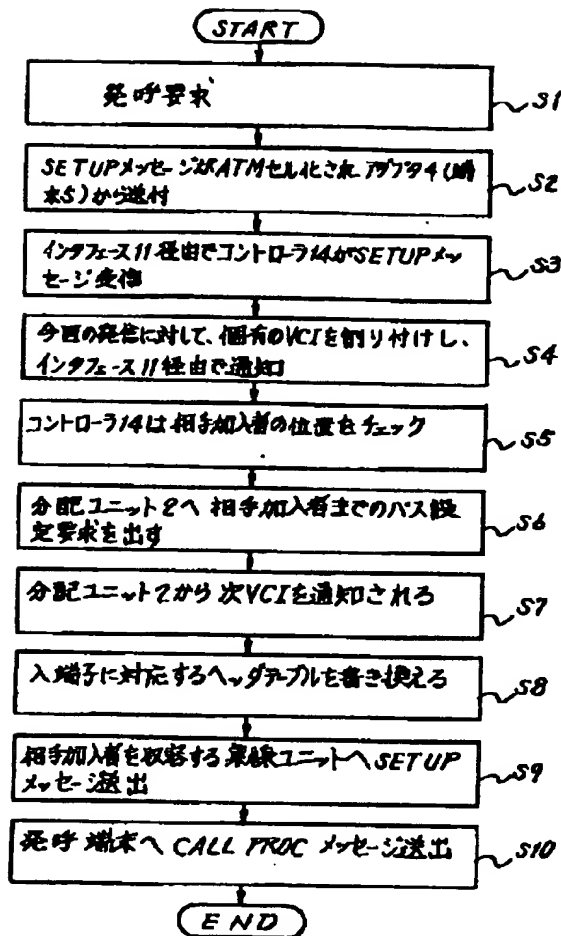 START
発呼要求
S1
SETUPメッセージがATMセル化され、アダプタ4(端
末5)から送付
S2
インタフェース11経由でコントローラ14がSETUPメッ
セージ受信
S3
今回の発信に対して、個有のVCIを割り付けし、
インタフェース11経由で通知
S4
コントローラ14は相手加入者の位置をチェック
S5
分配ユニット2へ相手加入者までのパス設
定要求を出す
S6
分配ユニット2から次VCIを通知される
S7
入端子に対応するヘッダテーブルを書き換える
S8
相手加入者を収容する集線ユニットへSETUP
メッセージ送出
S9
発呼端末へ CALL PROC メッセージ送出
S10
END